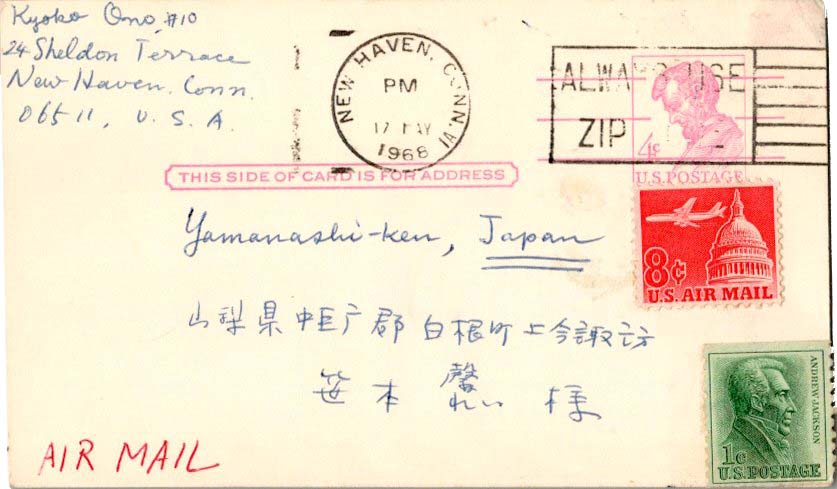 Kyoko Ono, #10
24 Sheldon Terrace
New Haven. Conn.
06511, U. S. A.
NEW HAVEN, CONN.
PM
17 MAY
1968
ALWAYS USE
ZIP
4¢
U.S. POSTAGE
THIS SIDE OF CARD IS FOR ADDRESS
Yamanashi-ken, Japan
8¢
U.S. AIR MAIL
山梨県中巨广郡白根町上今諏訪
笹本 馨 様
れい
AIR MAIL
ANDREW JACKSON
1¢
U.S. POSTAGE